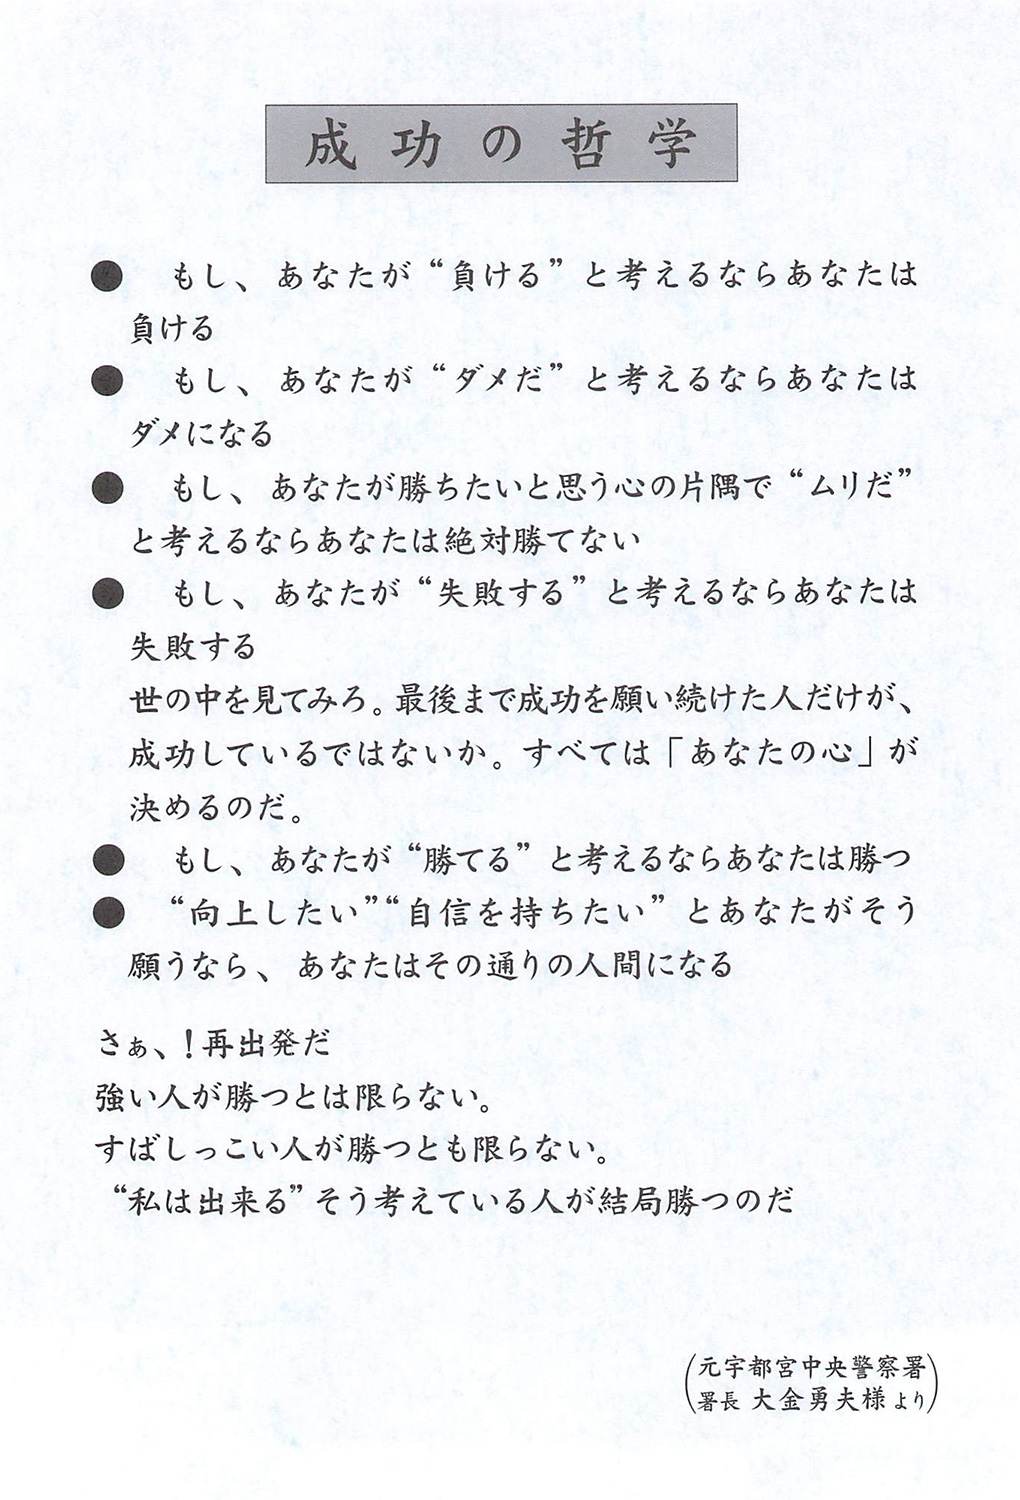 成功の哲学
● もし、あなたが“負ける”と考えるならあなたは
負ける
● もし、あなたが“ダメだ”と考えるならあなたは
ダメになる
● もし、あなたが勝ちたいと思う心の片隅で“ムリだ”
と考えるならあなたは絶対勝てない
● もし、あなたが“失敗する”と考えるならあなたは
失敗する
世の中を見てみろ。最後まで成功を願い続けた人だけが、
成功しているではないか。すべては「あなたの心」が
決めるのだ。
● もし、あなたが“勝てる”と考えるならあなたは勝つ
● “向上したい”“自信を持ちたい”とあなたがそう
願うなら、あなたはその通りの人間になる
さぁ、!再出発だ
強い人が勝つとは限らない。
すばしっこい人が勝つとも限らない。
“私は出来る”そう考えている人が結局勝つのだ
(元宇都宮中央警察署
署長 大金勇夫様より)